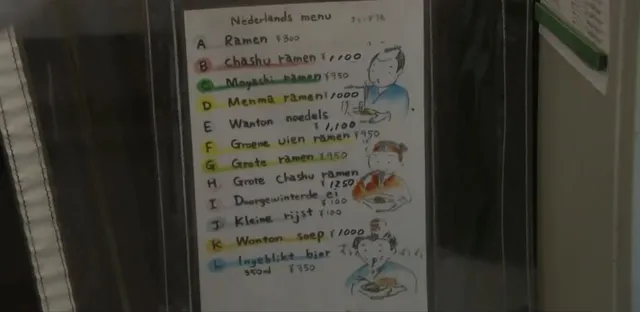 Nederlands menu
A Ramen ¥300
B Chashu ramen ¥1100
C Moyashi ramen ¥950
D Menma ramen ¥1000
E Wanton noedels ¥1,100
F Groene uien ramen ¥950
G Grote ramen ¥950
H Grote Chashu ramen ¥1250
I Doorgewinterde ei ¥100
J Kleine rijst ¥100
K Wonton soep ¥1000
L Ingeblikt bier
350ml ¥350